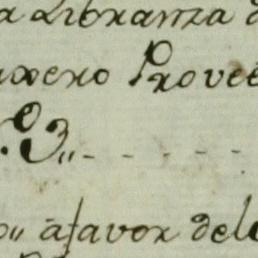 a Libranza d
uxero Provee
.º 3,,- - - -
o,, á favor dele